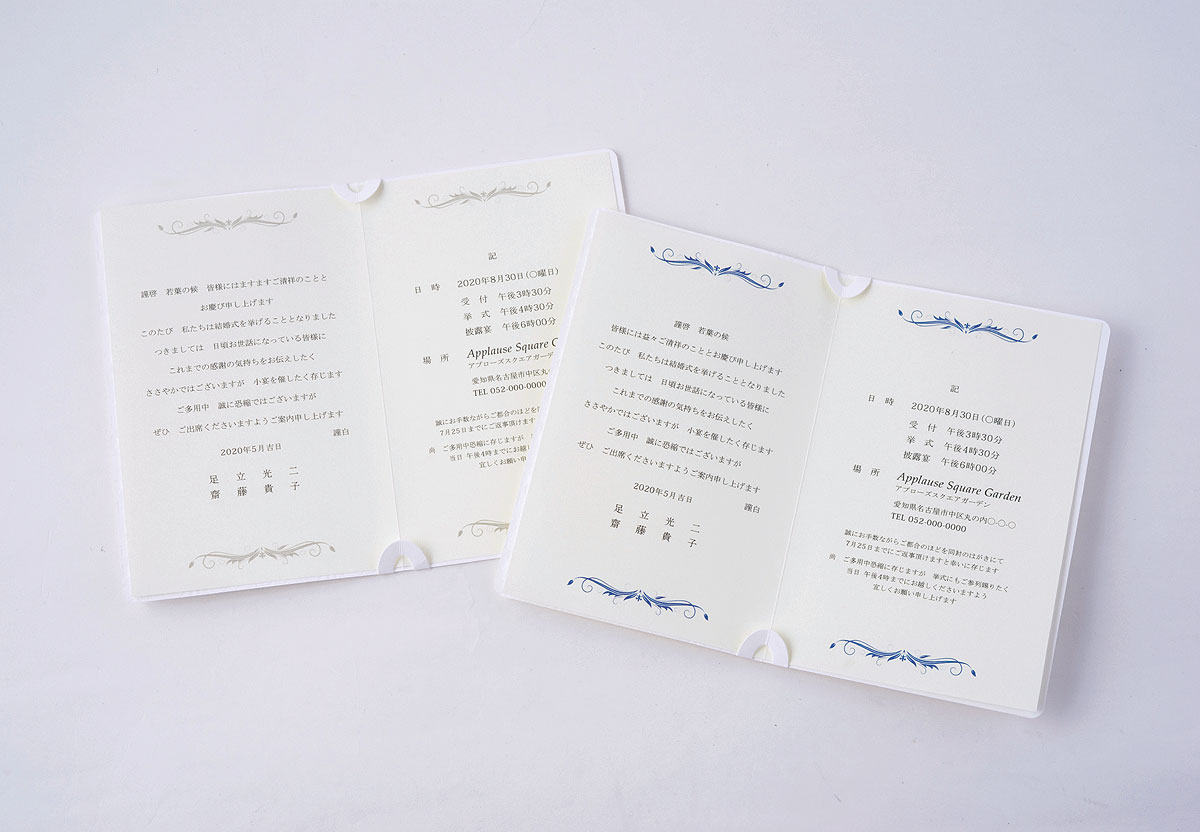 謹啓　若葉の候　皆様にはますますご清祥のことと
お慶び申し上げます
このたび　私たちは結婚式を挙げることとなりました
つきましては　日頃お世話になっている皆様に
これまでの感謝の気持ちをお伝えしたく
ささやかではございますが　小宴を催したく存じます
ご多用中　誠に恐縮ではございますが
ぜひ　ご出席くださいますようご案内申し上げます
謹白
2020年5月吉日
足　立　光　二
齋　藤　貴　子
記
日　時　2020年8月30日(〇曜日)
受　付　午後3時30分
挙　式　午後4時30分
披露宴　午後6時00分
場　所　Applause Square G
アプローズスクエアガーデン
愛知県名古屋市中区丸の
TEL 052-000-0000
誠にお手数ながらご都合のほどを同
7月25日までにご返事頂けます
尚　ご多用中恐縮に存じますが
当日 午後4時までにお越し
宜しくお願い申
謹啓　若葉の候
皆様には益々ご清祥のこととお慶び申し上げます
このたび　私たちは結婚式を挙げることとなりました
つきましては　日頃お世話になっている皆様に
これまでの感謝の気持ちをお伝えしたく
ささやかではございますが　小宴を催したく存じます
ご多用中　誠に恐縮ではございますが
ぜひ　ご出席くださいますようご案内申し上げます
謹白
2020年5月吉日
足　立　光　二
齋　藤　貴　子
記
日　時　2020年8月30日(〇曜日)
受　付　午後3時30分
挙　式　午後4時30分
披露宴　午後6時00分
場　所　Applause Square Garden
アプローズスクエアガーデン
愛知県名古屋市中区丸の内〇-〇-〇
TEL 052-000-0000
誠にお手数ながらご都合のほどを同封のはがきにて
7月25日までにご返事頂けますと幸いに存じます
尚　ご多用中恐縮に存じますが　挙式にもご参列賜りたく
当日 午後4時までにお越しくださいますよう
宜しくお願い申し上げます